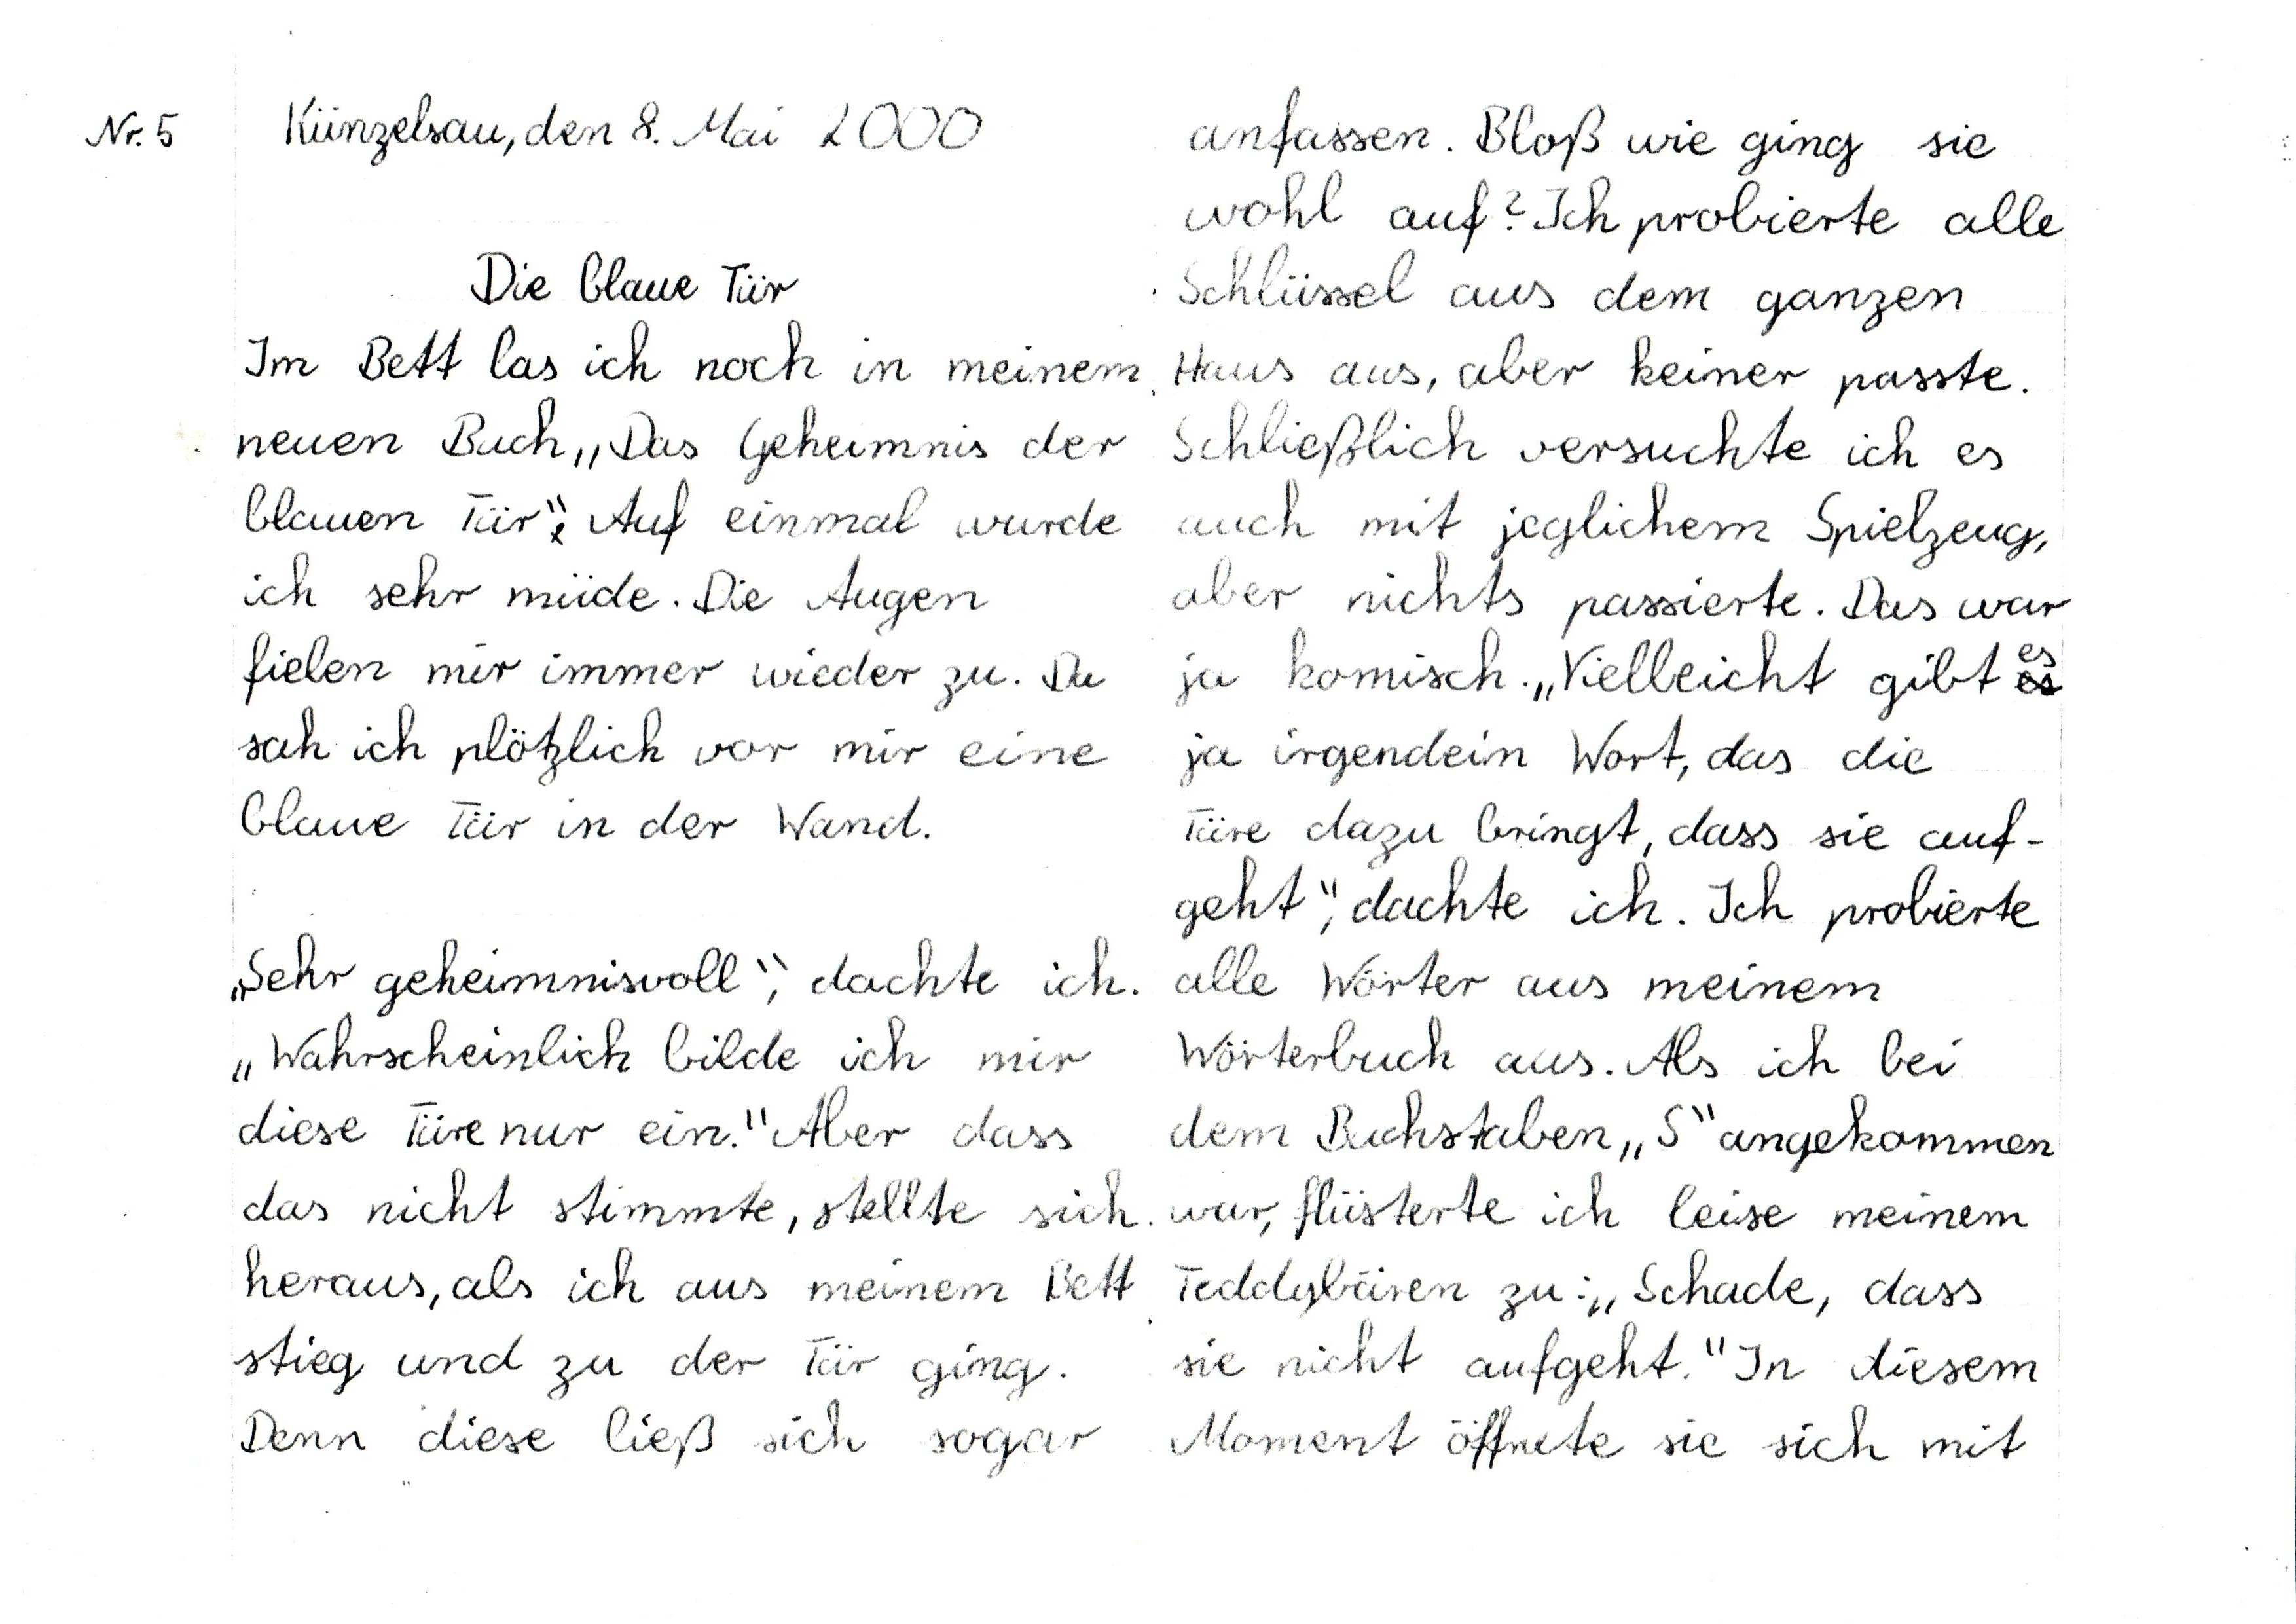 Nr. 5
Künzelsau, den 8. Mai 2000
Die blaue Tür
Im Bett las ich noch in meinem
neuen Buch „Das Geheimnis der
blauen Tür“. Auf einmal wurde
ich sehr müde. Die Augen
fielen mir immer wieder zu. Da
sah ich plötzlich vor mir eine
blaue Tür in der Wand.
„Sehr geheimnisvoll“, dachte ich.
„Wahrscheinlich bilde ich mir
diese Türe nur ein.“ Aber dass
das nicht stimmte, stellte sich
heraus, als ich aus meinem Bett
stieg und zu der Tür ging.
Denn diese ließ sich sogar
anfassen. Bloß wie ging sie
wohl auf? Ich probierte alle
Schlüssel aus dem ganzen
Haus aus, aber keiner passte.
Schließlich versuchte ich es
auch mit jeglichem Spielzeug,
aber nichts passierte. Das war
ja komisch. „Vielleicht gibt es
ja irgendein Wort, das die
Türe dazu bringt, dass sie auf-
geht“, dachte ich. Ich probierte
alle Wörter aus meinem
Wörterbuch aus. Als ich bei
dem Buchstaben „S“ angekommen
war, flüsterte ich leise meinem
Teddybären zu: „Schade, dass
sie nicht aufgeht.“ In diesem
Moment öffnete sie sich mit